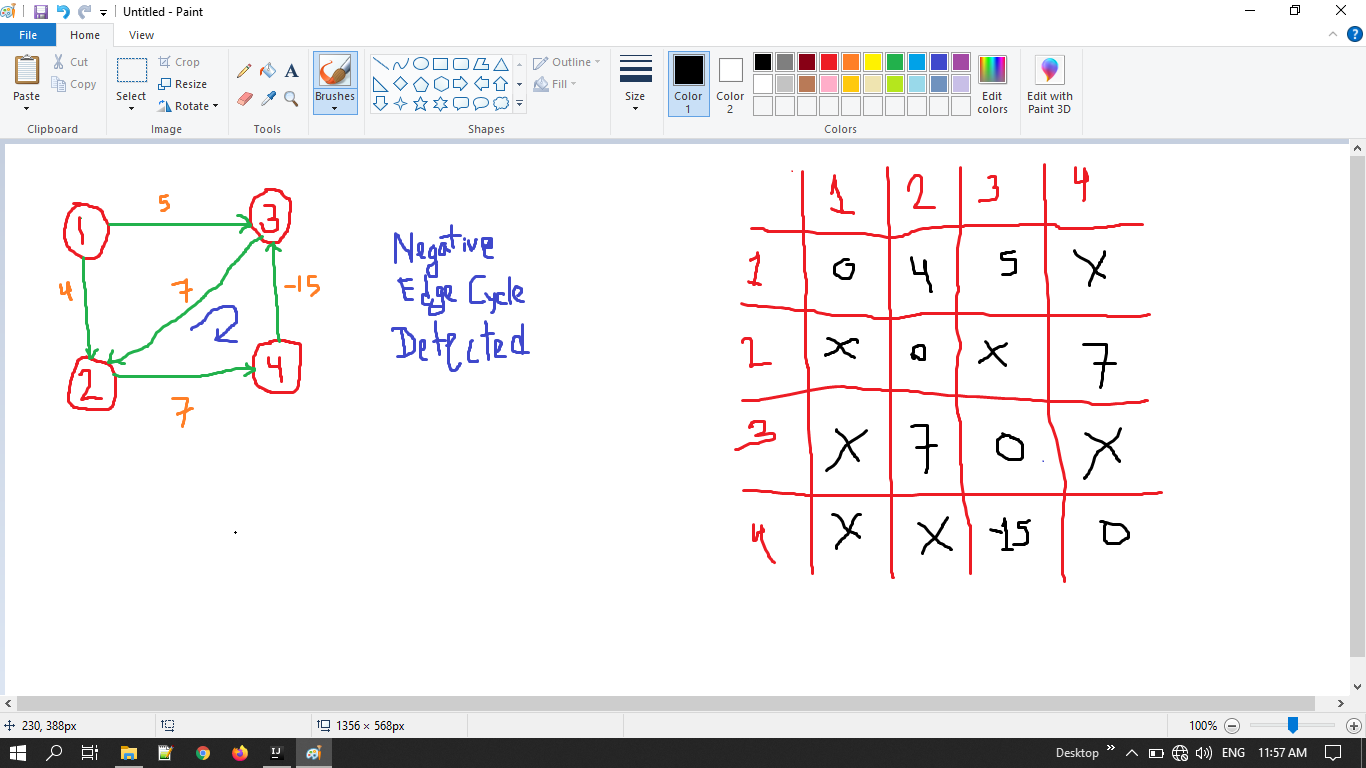 Untitled - Paint
File Home View
Paste Cut Copy
Clipboard
Select Crop Resize Rotate
Image
A
Tools
Brushes
Outline Fill
Shapes
Size
Color 1 Color 2
Edit colors
Colors
Edit with Paint 3D
1
5
3
4
7
-15
2
7
4
Negative
Edge Cycle
Detected
1 2 3 4
1 0 4 5 X
2 X 0 X 7
3 X 7 0 X
4 X X -15 0
230, 388px
1356 × 568px
100%
IJ
Desktop
ENG
11:57 AM